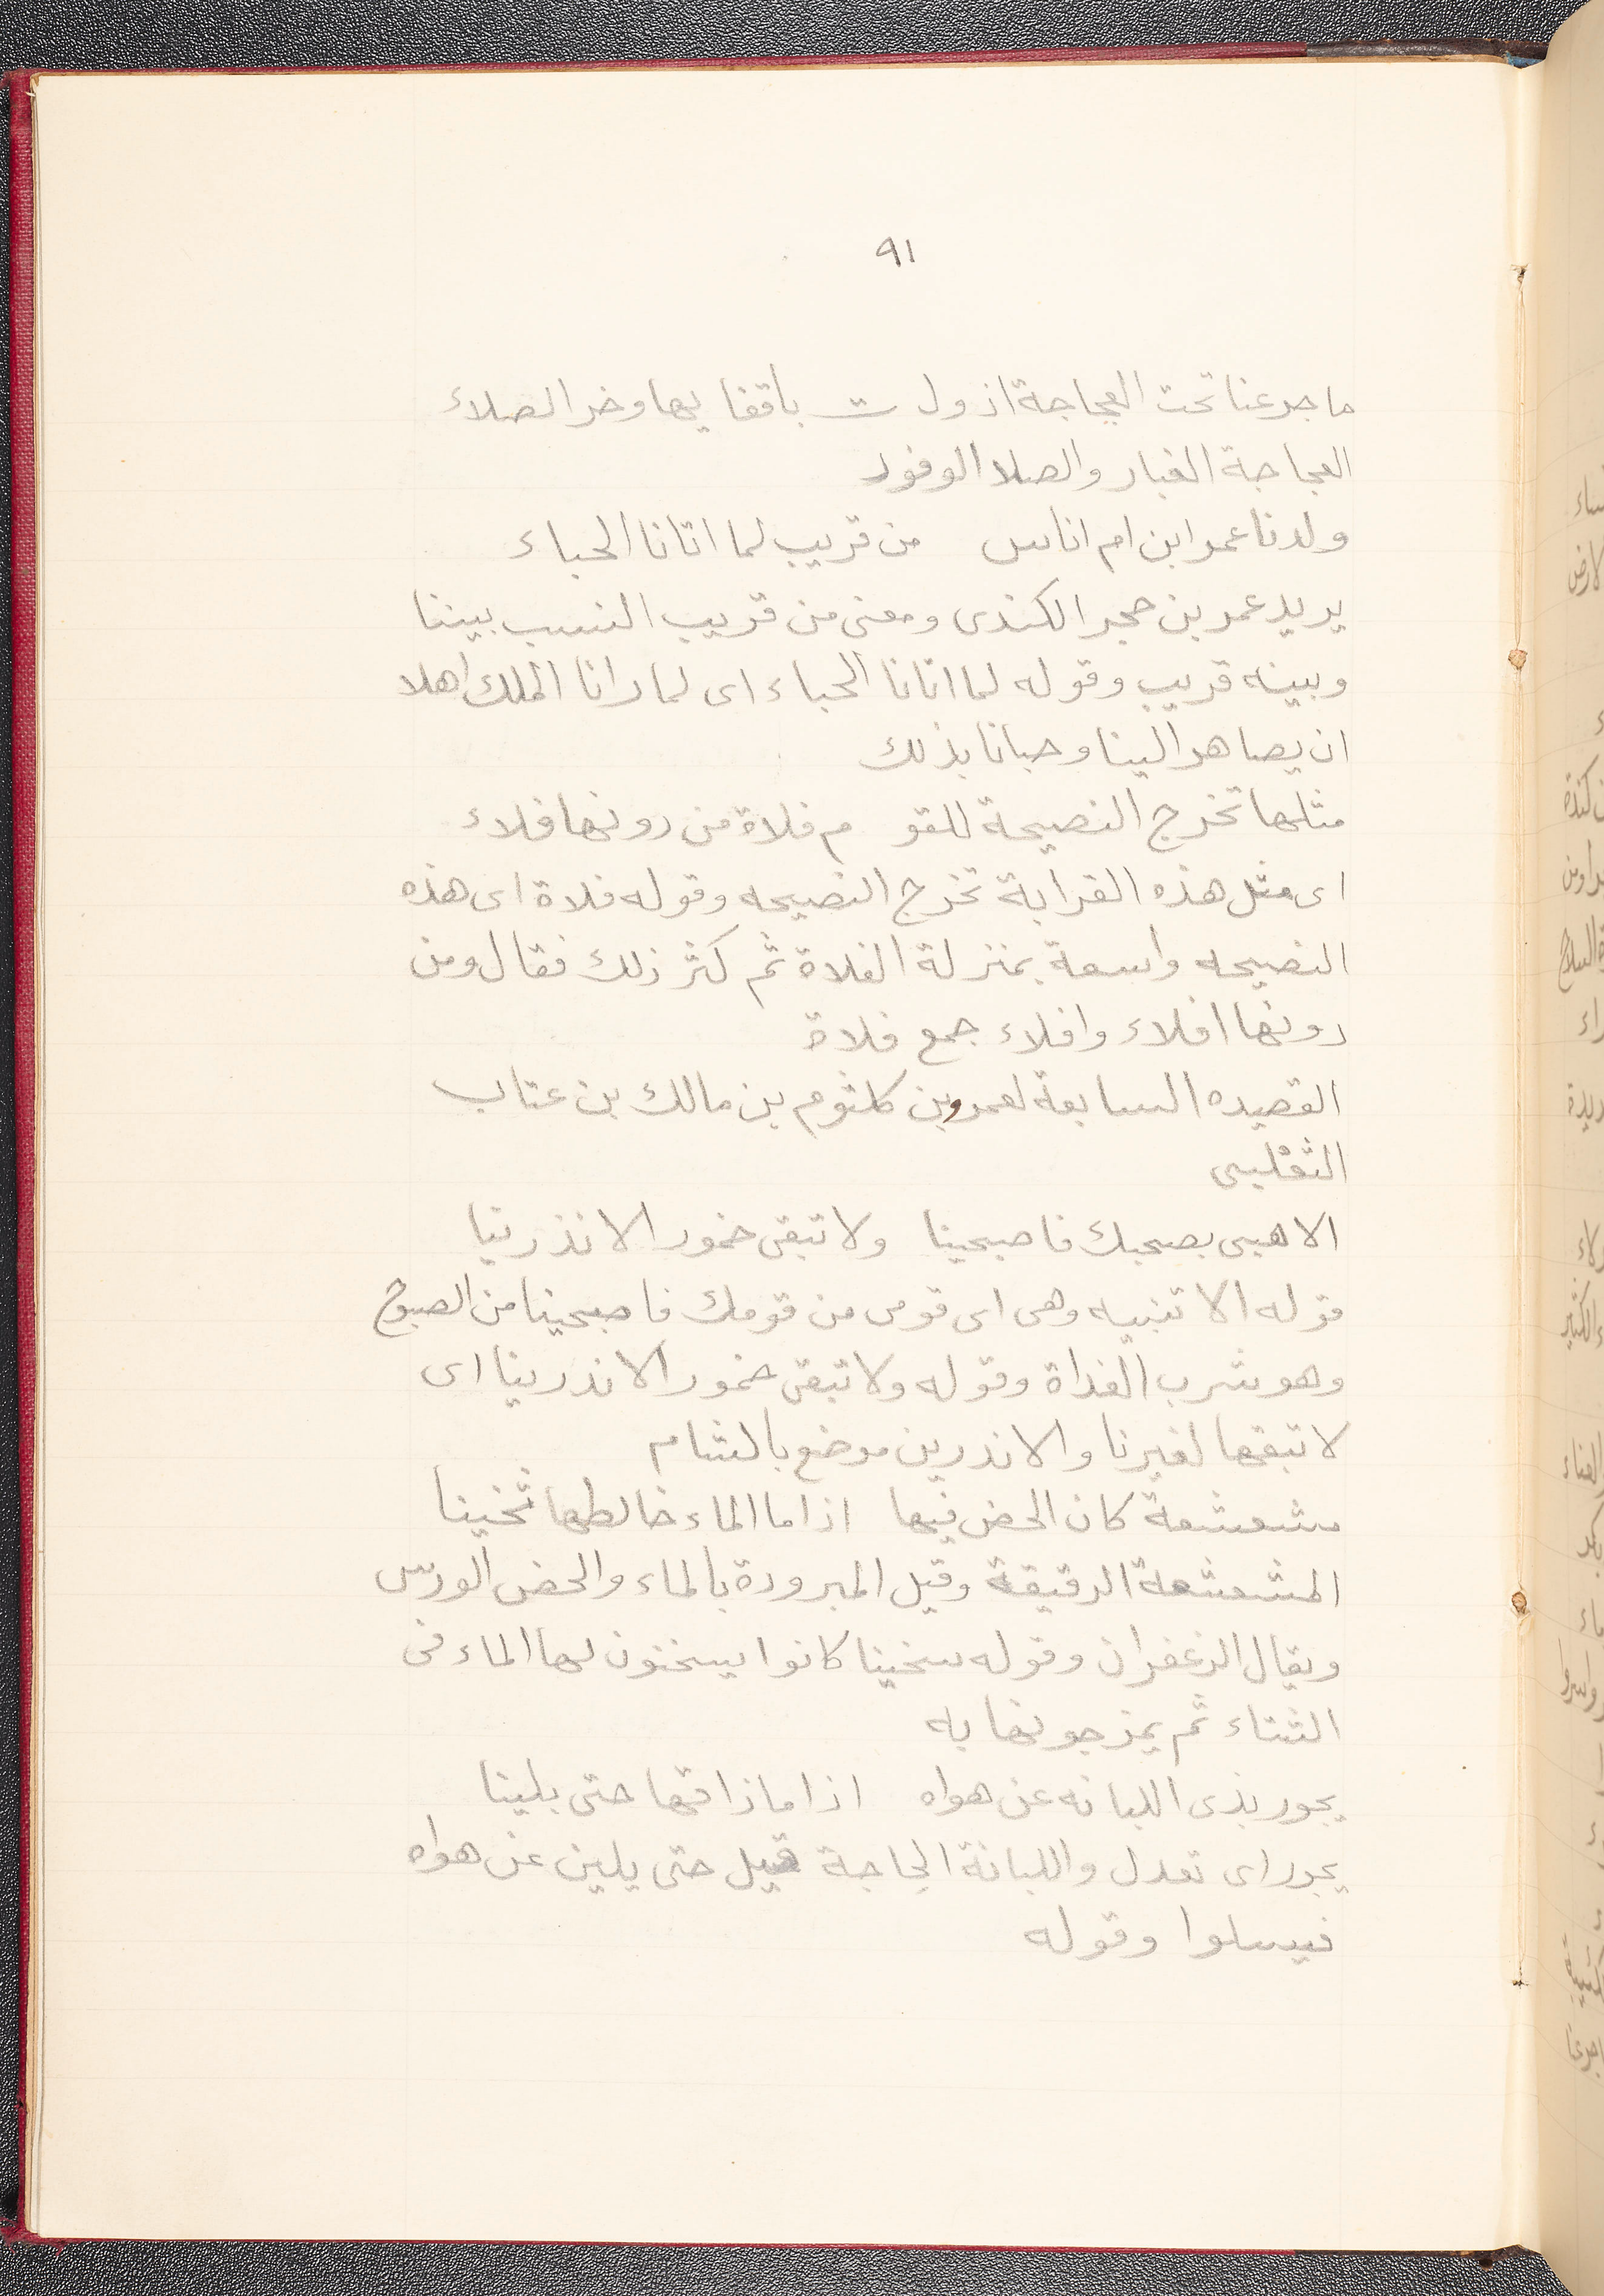 ٩١
ما جرعنا تحت العجاجة اذ ول ت باقفا يها وخر الصلاء
العجاجة الغبار والصلا الوفود
ولدنا عمر ابن ام اناس من قريب لما اتانا الحباء
يريد عمر بن حجر الكندى ومعنى من قريب النسب بيننا
وبينه قريب وقوله لما اتانا الحباء اى لما رانا الملك اهلا
ان يصاهر الينا وحبانا بذلك
مثلها تخرج النصيحة للقو م فلاة من دونها فلاء
اى مثل هذه القرابة تخرج النصيحه وقوله فلاة اى هذه
النصيحه واسعة بمنزلة الفلاة ثم كثر ذلك فقال ومن
دونها افلاء وافلاء جمع فلاة
القصيده السابعة لعمرو بن كلثوم بن مالك بن عتاب
الثغلبى
الا هبى بصحبك فاصبحينا ولا تبقى خمور الانذرنيا
قوله الا تنبيه وهى اى قومى من قومك فاصبحينا من الصبوح
وهو شرب الغداة وقوله ولا تبقى خمور الاندرينا اى
لا تبقها لغيرنا والاندرين موضع بالشام
مشعشعة كان الحض فيها اذا ما الماء خالطها ثخينا
المشعشعة الرقيقة وقيل المبرودة بالماء والحض الورس
ويقال الزعفران وقوله سخينا كانوا يسخنون لها الماء فى
الشتاء ثم يمزجونها به
يجور بذى اللبانه عن هواه اذا ما ذاقها حتى يلينا
يجور اى تعدل واللبانة الحاجة قيل حتى يلين عن هواه
فيسلوا وقوله